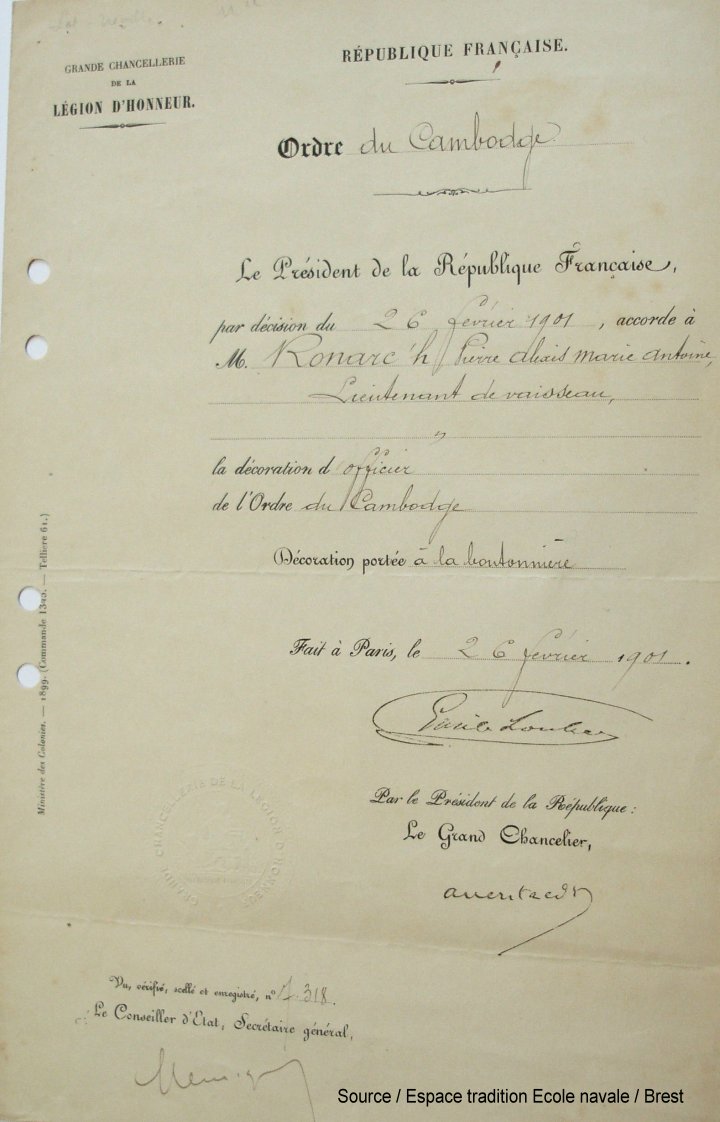 GRANDE CHANCELLERIE
DE LA
LÉGION D'HONNEUR.
RÉPUBLIQUE FRANÇAISE.
Ordre du Cambodge
Le Président de la République Française,
par décision du 26 février 1901, accorde à
M. Ronarc'h Pierre Alexis Marie Antoine,
Lieutenant de vaisseau,
"
la décoration d'officier
de l'Ordre du Cambodge
Décoration portée à la boutonnière
Fait à Paris, le 26 février 1901.
Emile Loubet
Par le Président de la République :
Le Grand Chancelier,
GRANDE CHANCELLERIE DE LA LEGION D'HONNEUR
Vu, vérifié, scellé et enregistré, n° 7.318.
Le Conseiller d'Etat, Secrétaire général,
Ministère des Colonies. — 1899. (Commande 1343. — Tellière 61.)
Source / Espace tradition Ecole navale / Brest